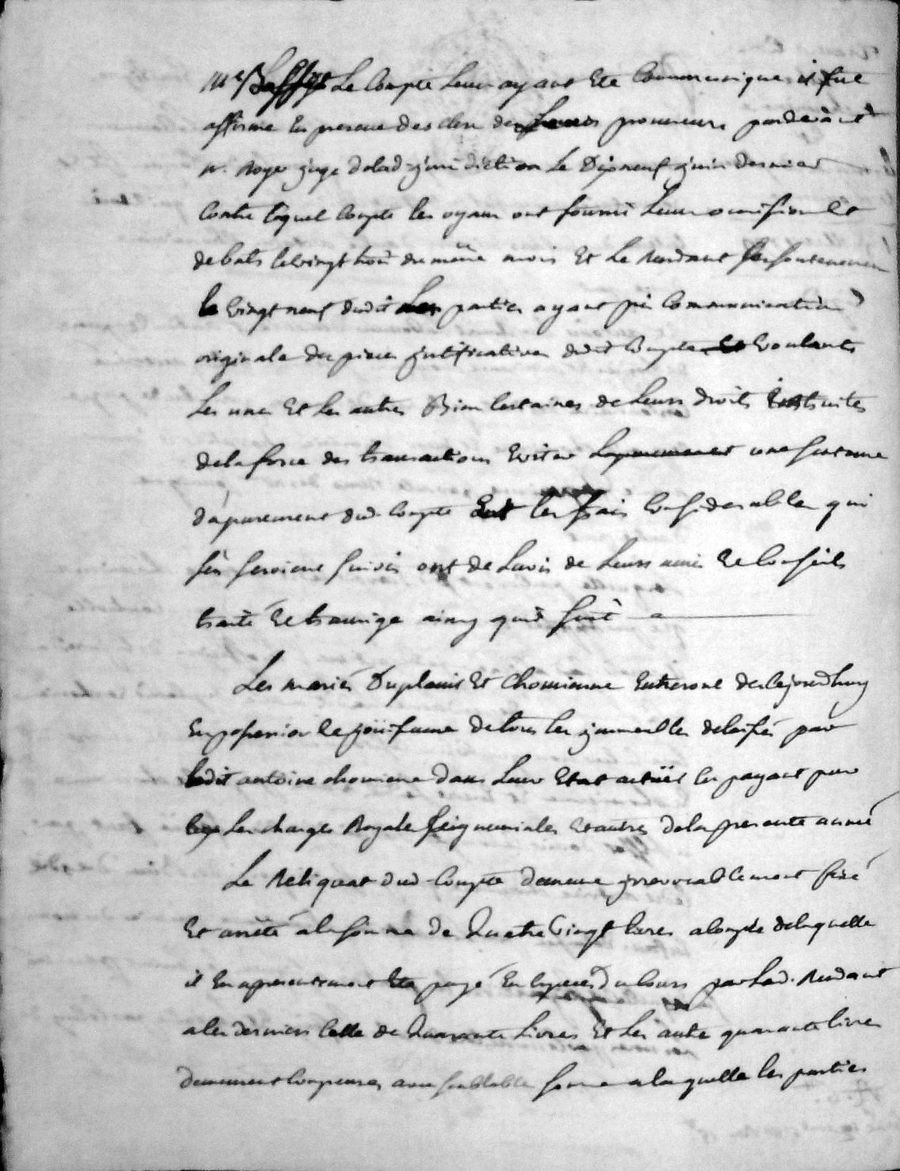 Me Le Compte leur ayant Ete Communiqué il fut
affirmé En presence des de procureurs pardevant
m. Royer juge de lad. jurisdiction Le Dixneuf juin dernier
Contre lequel Compte les oyans ont fourni Leurs omissions Et
debats le vingt huit du même mois Et Le Rendant ses soutenemens
le vingt neuf dudit Les parties ayant pris Communication
originale des pieces justificatives dudit Compte Et Voulants
Les unes Et Les autres Bien Certaines de Leurs droits instruites
de la force des transactions Eviter une
d'apurement dud. Compte les frais Considerables qui
s'en seroient suivis ont de Lavis de Leurs amis Et Conseils
traité Et transigé ainsy qu'il suit
Les mariés Duplanil Et Chomienne Entreront des cejourdhuy
En possession Et jouissance de tous les jmmeubles delaissés par
ledit antoine chomiene dans Leur Etat actüel En payant par
Les charges Royales Seigneuriales Et autres de la presente année
Le Reliquat dud. Compte demeure jrrevocablement fixé
Et arrêté a la somme de Quatre Vingt livres a compte de laquelle
il En a presentement Eté payé En Especes du Cours par Lad. Rendant
a ces derniers Celle de Quarante Livres Et Les autre quarante livres
demeurent Compensées avec semblable somme a laquelle les parties